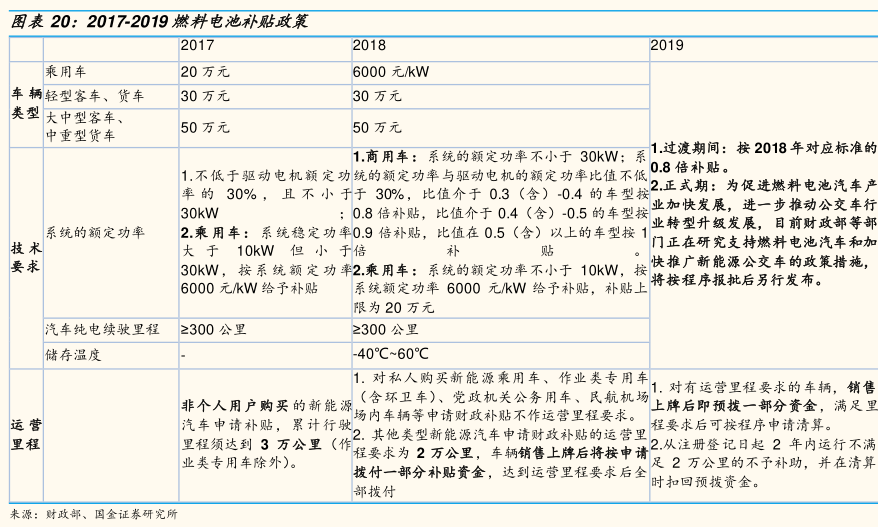 图表 20：2017-2019 燃料电池补贴政策
2017 2018 2019
车辆类型
乘用车 20 万元 6000 元/kW
轻型客车、货车 30 万元 30 万元
大中型客车、
中重型货车 50 万元 50 万元
1.过渡期间：按 2018 年对应标准的
0.8 倍补贴。
2.正式期：为促进燃料电池汽车产
业加快发展，进一步推动公交车行
业转型升级发展，目前财政部等部
门正在研究支持燃料电池汽车和加
快推广新能源公交车的政策措施，
将按程序报批后另行发布。
技术
要求
系统的额定功率
1.不低于驱动电机额定功
率的 30%，且不小于
30kW ；
2.乘用车：系统稳定功率
大于 10kW 但小于
30kW，按系统额定功率
6000 元/kW 给予补贴
1.商用车：系统的额定功率不小于 30kW；系
统的额定功率与驱动电机的额定功率比值不低
于 30%，比值介于 0.3（含）-0.4 的车型按
0.8 倍补贴，比值介于 0.4（含）-0.5 的车型按
0.9 倍补贴，比值在 0.5（含）以上的车型按 1
倍补贴。
2.乘用车：系统的额定功率不小于 10kW，按
系统额定功率 6000 元/kW 给予补贴，补贴上
限为 20 万元
汽车纯电续驶里程 ≥300 公里 ≥300 公里
储存温度 - -40℃~60℃
运营
里程
非个人用户购买的新能源
汽车申请补贴，累计行驶
里程须达到 3 万公里（作
业类专用车除外）。
1. 对私人购买新能源乘用车、作业类专用车
（含环卫车）、党政机关公务用车、民航机场
场内车辆等申请财政补贴不作运营里程要求。
2. 其他类型新能源汽车申请财政补贴的运营里
程要求为 2 万公里，车辆销售上牌后将按申请
拨付一部分补贴资金，达到运营里程要求后全
部拨付
1. 对有运营里程要求的车辆，销售
上牌后即预拨一部分资金，满足里
程要求后可按程序申请清算。
2.从注册登记日起 2 年内运行不满
足 2 万公里的不予补助，并在清算
时扣回预拨资金。
来源：财政部、国金证券研究所